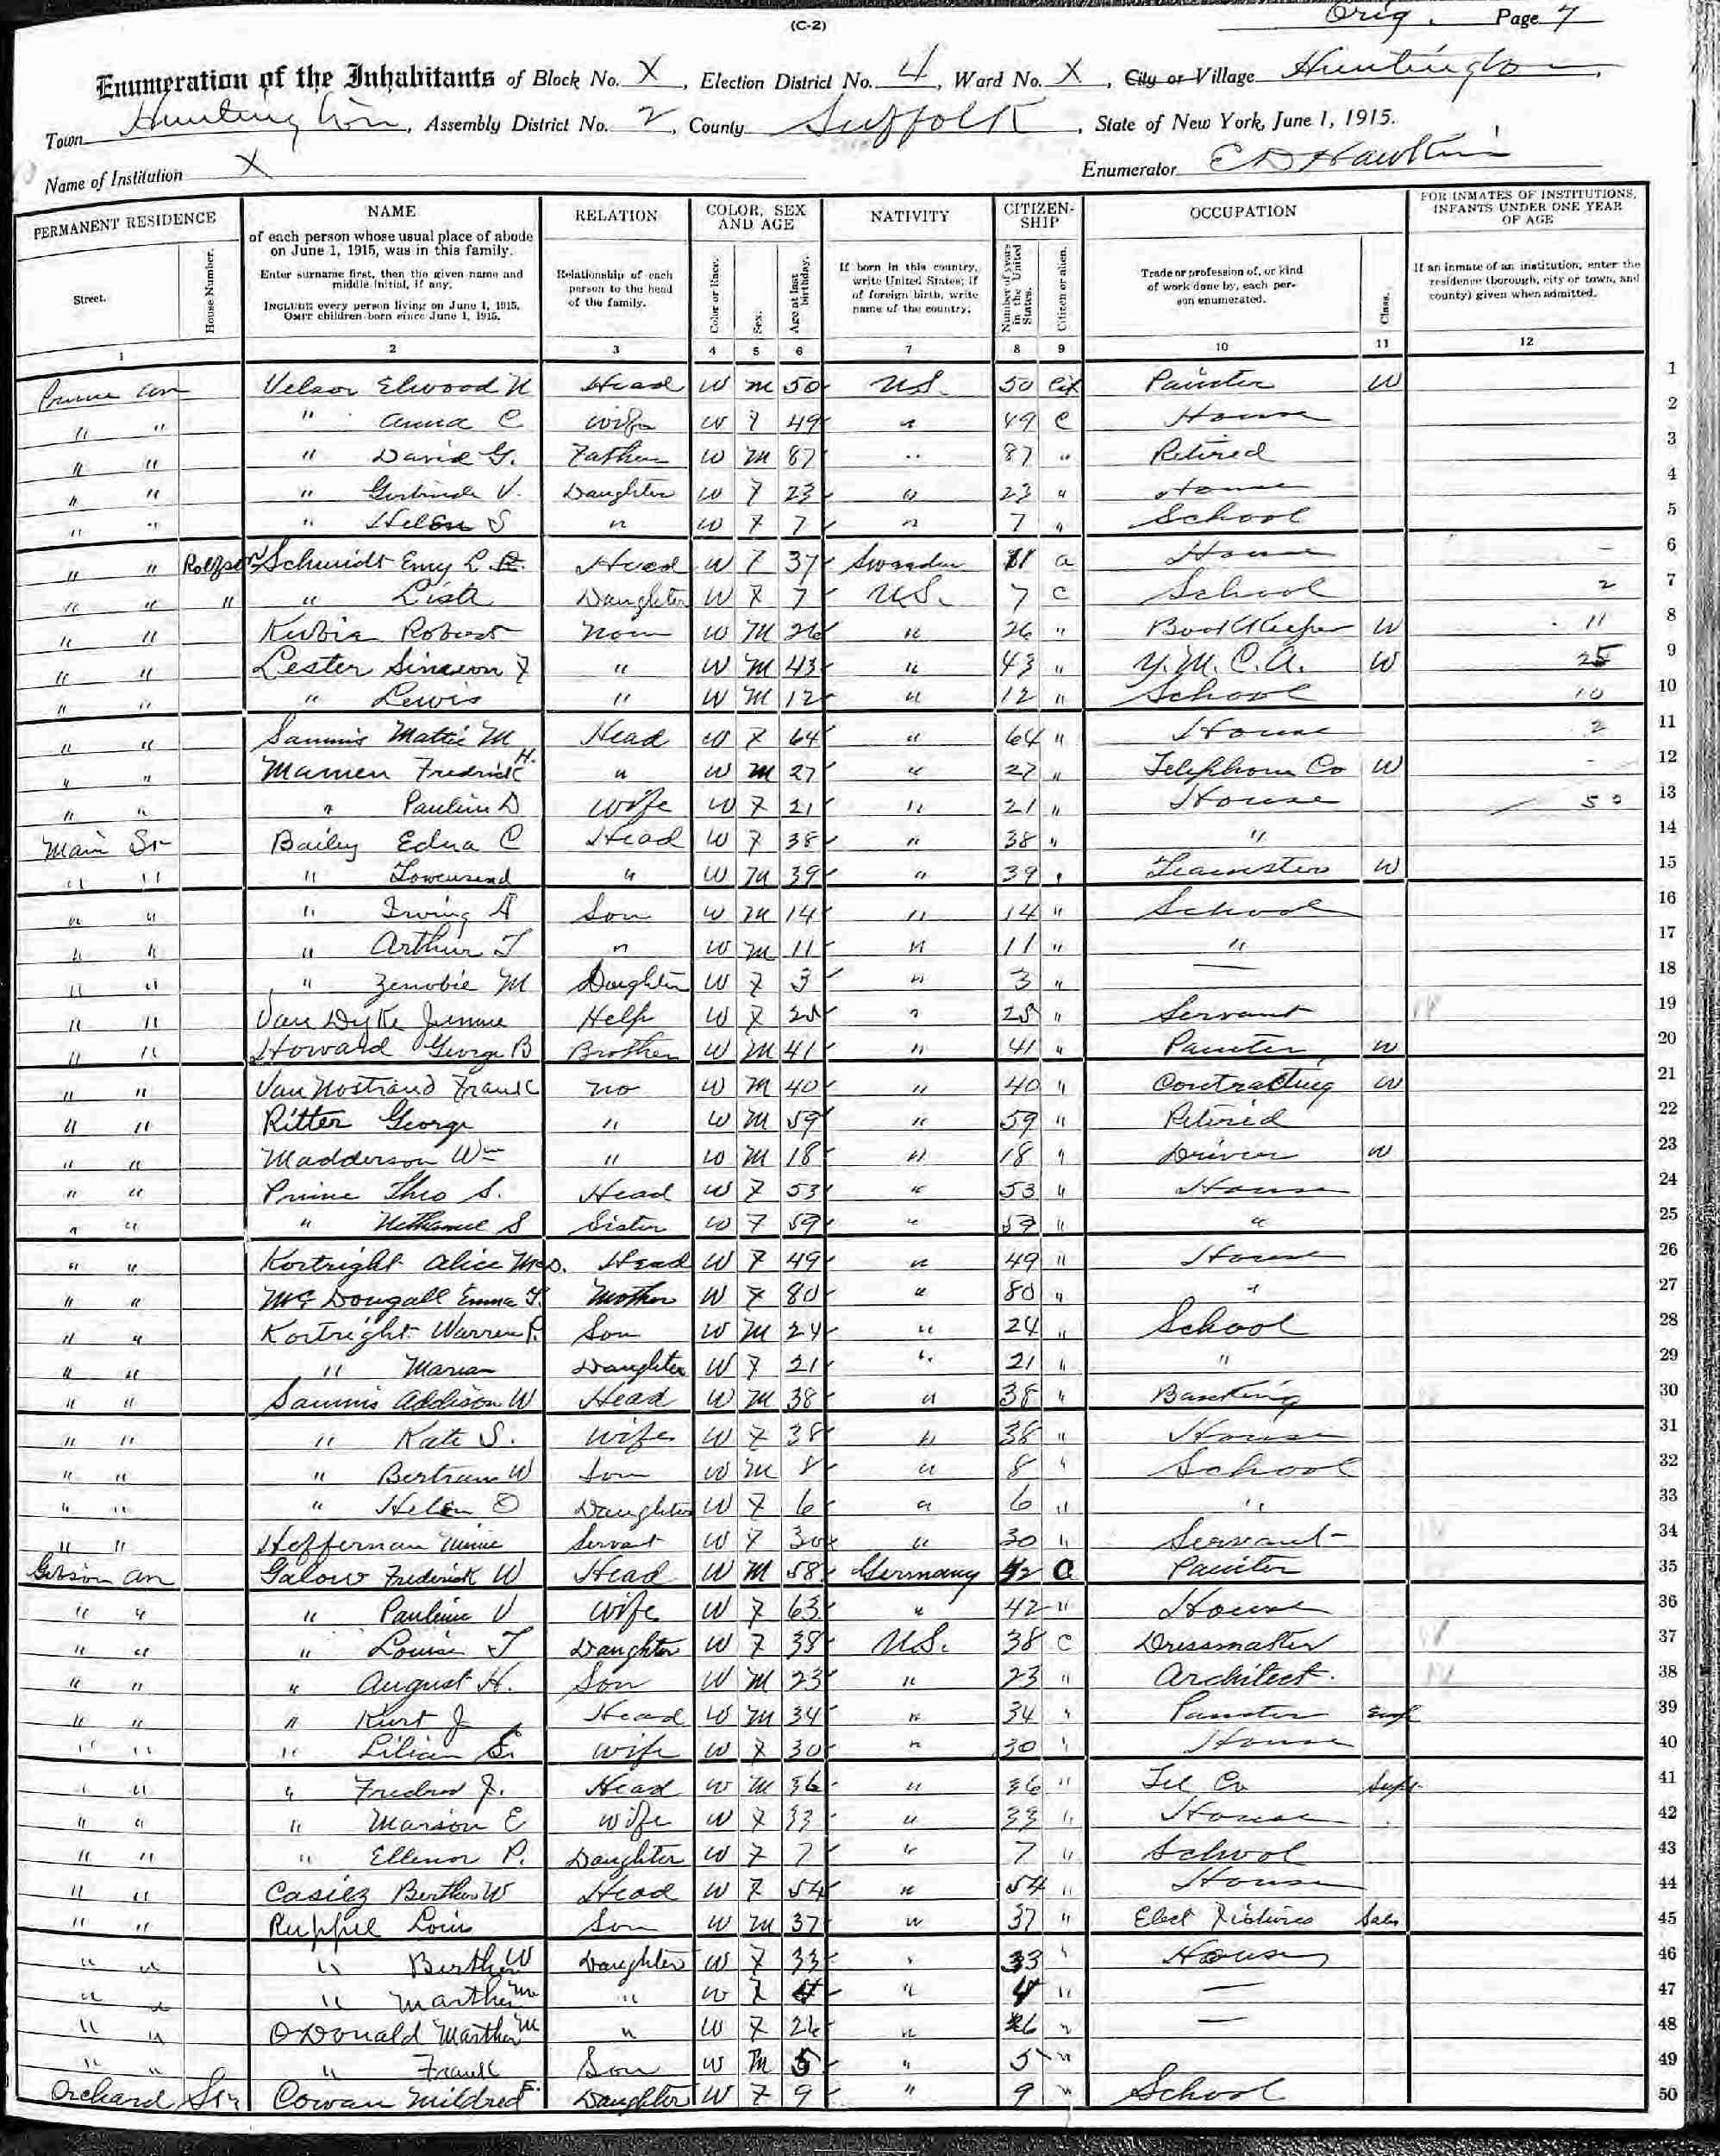 (C-2)
Orig. Page 7
Enumeration of the Inhabitants of Block No. X, Election District No. 4, Ward No. X, City or Village Huntington,
Town Huntington, Assembly District No. 2, County Suffolk, State of New York, June 1, 1915.
Name of Institution X Enumerator E D Hawkins
PERMANENT RESIDENCE NAME RELATION COLOR, SEX AND AGE NATIVITY CITIZENSHIP OCCUPATION FOR INMATES OF INSTITUTIONS, INFANTS UNDER ONE YEAR OF AGE
Street. House Number. of each person whose usual place of abode on June 1, 1915, was in this family. Enter surname first, then the given name and middle initial, if any. INCLUDE every person living on June 1, 1915. OMIT children born since June 1, 1915. Relationship of each person to the head of the family. Color or Race. Sex. Age at last birthday. If born in this country, write United States; if of foreign birth, write name of the country. Number of years in the United States. Citizen or alien. Trade or profession of, or kind of work done by, each person enumerated. Class. If an inmate of an institution, enter the residence (borough, city or town, and county) given when admitted.
1 2 3 4 5 6 7 8 9 10 11 12
Prime Velsor Elwood N Head W M 50 U.S. 50 Cit Painter W 1
" " " Anna C Wife W F 49 " 49 C House 2
" " " David G. Father W M 87 " 87 " Retired 3
" " " Gertrude V. Daughter W F 23 " 23 " House 4
" " " Helen S " W F 7 " 7 " School 5
" " Schmidt Emy L. Head W F 37 Sweeden 11 a House 6
" " " " Daughter W F 7 U.S. 7 C School 2 7
" " Robert None W M 26 " 26 " Book Keeper W 11 8
" " Lester Simeon F " W M 43 " 43 " Y.M.C.A. W 25 9
" " " Lewis " W M 12 " 12 " School 10 10
" " Sammis Mattie M Head W F 64 " 64 " House 2 11
" " Mamen Fredrick H. " W M 27 " 27 " Telephone Co W 12
" " " Pauline D Wife W F 21 " 21 " House 50 13
Main St Bailey Edna C Head W F 38 " 38 " " 14
" " " Townsend " W M 39 " 39 " Teamster W 15
" " " Irving A Son W M 14 " 14 " School 16
" " " Arthur T " W M 11 " 11 " " 17
" " " Zenobie M Daughter W F 3 " 3 " — 18
" " Van Dyke Jennie Help W F 28 " 28 " Servant 19
" " Howard George B Brother W M 41 " 41 " Painter W 20
" " Van Nostrand Frank no W M 40 " 40 " Contracting W 21
" " Ritter George " W M 59 " 59 " Retired 22
" " Madderson Wm " W M 18 " 18 " Driver W 23
" " Prime Theo S. Head W F 53 " 53 " House 24
" " " S Sister W F 59 " 59 " " 25
" " Kortright Alice Mrs. Head W F 49 " 49 " House 26
" " McDougall Emma T. Mother W F 80 " 80 " " 27
" " Kortright Warren P. Son W M 24 " 24 " School 28
" " " Marian Daughter W F 21 " 21 " " 29
" " Sammis Addison W Head W M 38 " 38 " Banking 30
" " " Kate S. Wife W F 38 " 38 " House 31
" " " Bertram W Son W M 8 " 8 " School 32
" " " Helen O Daughter W F 6 " 6 " " 33
" " Heffernan Minie Servant W F 30 " 30 " Servant 34
Gibson Av Galow Frederick W Head W M 58 Germany 42 C Painter 35
" " " Pauline V Wife W F 63 " 42 " House 36
" " " Louise T Daughter W F 38 U.S. 38 C Dressmaker 37
" " " August H. Son W M 23 " 23 " Architect. 38
" " " Kurt J Head W M 34 " 34 " Painter 39
" " " Lilian E. Wife W F 30 " 30 " House 40
" " " J. Head W M 36 " 36 " Tel Co Supt. 41
" " " Marion E Wife W F 33 " 33 " House 42
" " " Ellenor P. Daughter W F 7 " 7 " School 43
" " Bertha W Head W F 54 " 54 " House 44
" " Ruppel Louis Son W M 37 " 37 " Elect Fixtures Sales 45
" " " Bertha W Daughter W F 33 " 33 " House 46
" " " Martha M " W F 4 " 4 " — 47
" " O'Donald Martha M " W F 26 " 26 " — 48
" " " Frank Son W M 5 " 5 " 49
Orchard St. Cowan Mildred E. Daughter W F 9 " 9 " School 50